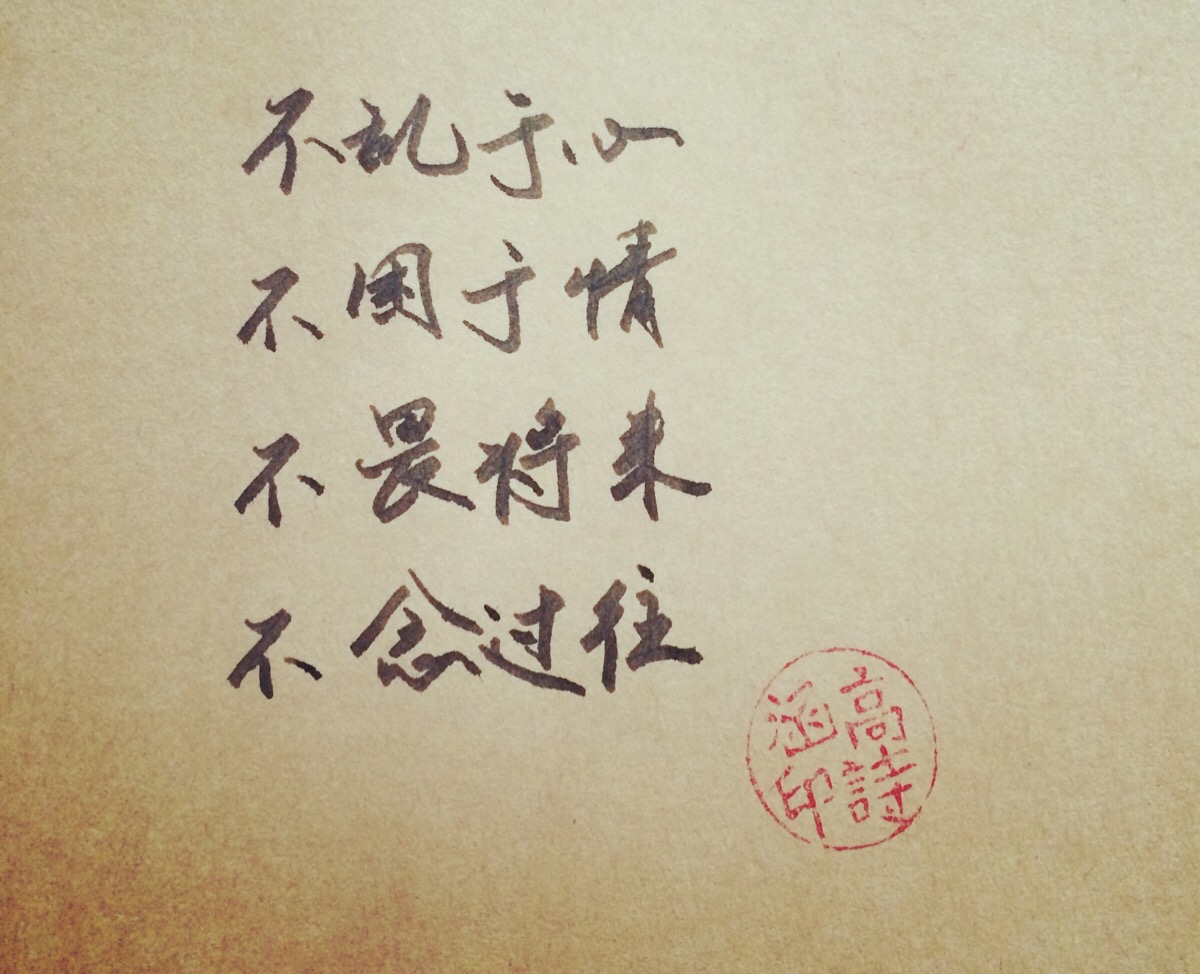 不乱于心
不困于情
不畏将来
不念过往
高詩
涵印